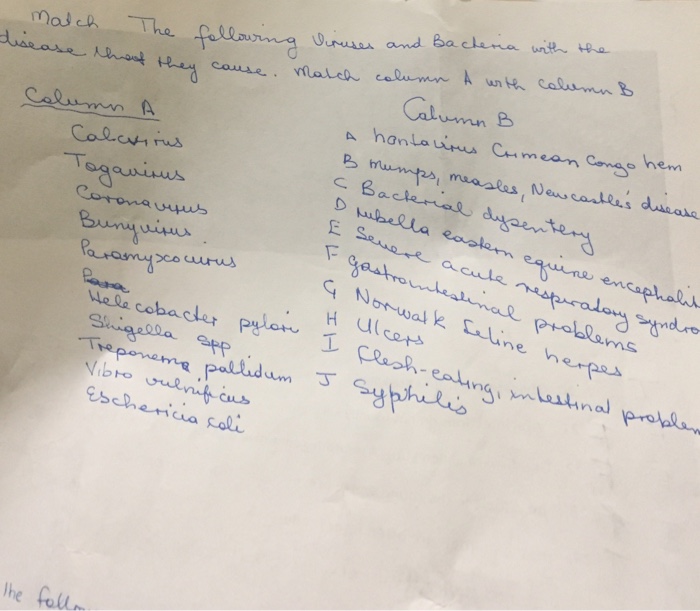 Match The following Viruses and Bacteria with the
disease that they cause. Match column A with column B
Column A
Calicivirus
Togavirus
Coronavirus
Bunyvirus
Paramyxovirus
Para
Helecobacter pylori
Shigella spp
Treponema pallidum
Vibro vulnificus
Eschericia coli
Column B
A hantavirus Crimean Congo hem
B mumps, measles, Newcastle's disease
C Bacterial dysentery
D rubella eastern equine encephalit
E Severe acute respiratory syndro
F gastrointestinal problems
G Norwalk feline herpes
H Ulcers
I flesh-eating, intestinal problem
J Syphilis
The follo